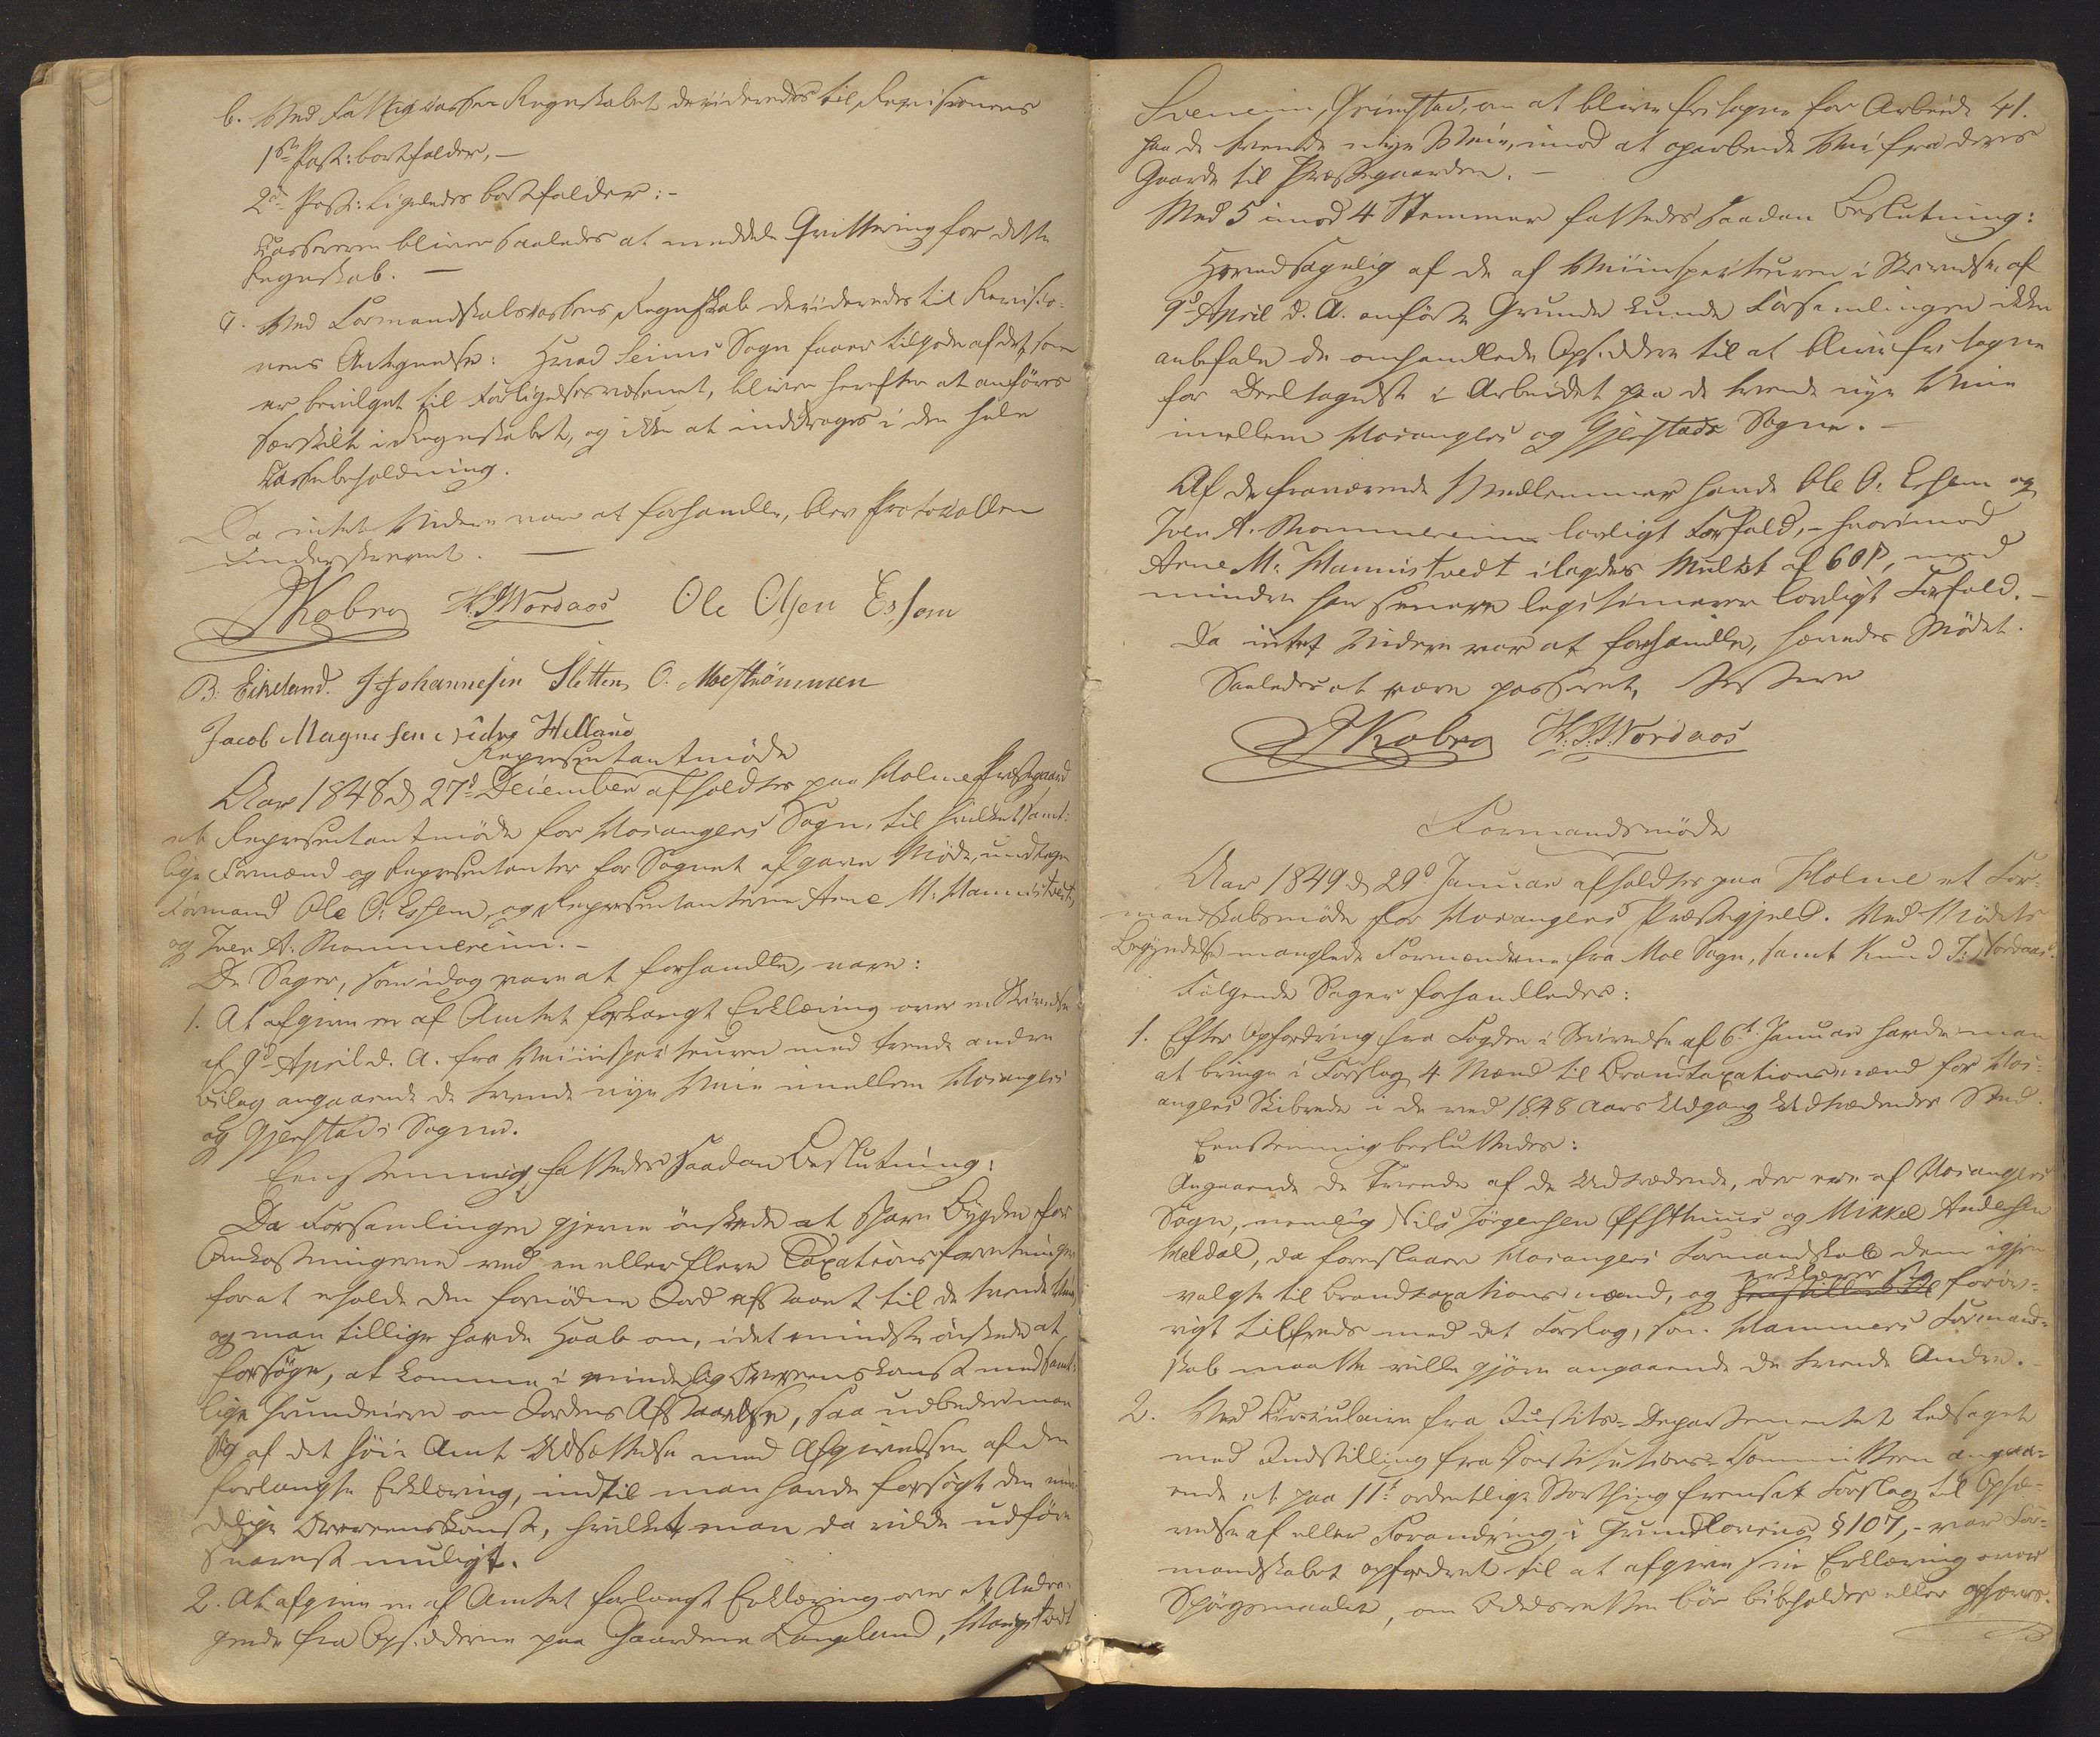 b. Ved Fattigcassens Regnskabet decideredes til Revisionens
1ste Post: bortfalder. —
2den Post: Ligeledes bortfalder: -
Cassereren bliver saaledes at meddele Qvittering for dette
Regnskab. —
Ved Formandskabskassens Regnskab decideredes til Revisio-
nens Antegnelse: Hvad Seims Sogn faaer tilgode af det, som
er bevilget til Forligelsesvæsenet, bliver herefter at anføres
særskilt i Regnskabet, og ikke at inddrages i den hele
Cassebeholdning.
Da intet Videre var at forhandle, blev Protocollen
underskrevet. —
JKobro H.J.Nordaas Ole Olsen Eshem
B. Eikeland. J Johannesen Sletten, O. Moströmmen
Jacob Magnesen Helland
Repræsentantmøde
Aar 1848 d 27d December afholdtes paa Holme Præstegaard
et Repræsentantmøde for Hosangers Sogn, til hvilket samt-
lige Formænd og Repræsentanter for Sognet afgave Møde, undtagen
Formand Ole O. Eshem, og Repræsentanterne Arne M. Mannistvedt,
og Iver A. Mommereim. -
De Sager, som idag vare at forhandle, vare:
1. At afgive en af Amtet forlangt Erklæring over en Skrivelse
af 9d April d. A. fra Veiinspecteuren med trende andre
Bilag angaaende de trende nye Veie imellem Hosangers
og Gjerstads Sogne.
Eenstemmig fattedes saadan Beslutning:
Da Forsamlingen gjerne ønskede at spare Bygden for
Omkostningerne ved en eller flere Taxationsforretninger
for at erholde den fornødne Jord afstaaet til de trende Veie,
og man tillige havde Haab om, idet mindste ønskede at
forsøge, at komme i mindelig Overeenskomst med samt-
lige Grundeiere om Jordens Afstaaelse, saa udbeder man
sig af det høie Amt Udsættelse med Afgivelsen af den
forlangte Erklæring, indtil man havde forsøgt den min-
delige Overeenskomst, hvilket man da vilde udføre
snarest muligt.
2. At afgive en af Amtet forlangt Erklæring over et Andra-
gende fra Opsidderne paa Gaardene Langeland, Mangstadt
Sveneim, Grimstad, om at blive fritagne for Arbeide 41.
paa de trende nye Veie, imod at oparbeide Vei fra deres
Gaarde til Præstegaarden. -
Med 5 imod 4 Stemmer fattedes saadan Beslutning:
Hovedsagelig af de af Veiinspecteuren i Skrivelse af
9d April d. A. anførte Grunde kunde Forsamlingen ikke
anbefale de omhandlede Opsiddere til at blive fritagne
for Deeltagelse i Arbeidet paa de trende nye Veie
imellem Hosangers og Gjerstads Sogne. -
Af de fraværende Medlemmer havde Ole O. Eshem og
Iver A. Mommereim lovligt Forfald, - hvorimod
Arne M. Mannistvedt ilagdes Mulkt af 60 ß, med
mindre han senere legitimerer lovligt Forfald. -
Da intet Videre var at forhandle, hævedes Mødet.
Saaledes at være passeret,
JKobro H.J.Nordaas
Formandsmøde
Aar 1849 d 29d Januar afholdtes paa Holme et For-
mandskabsmøde for Hosangers Præstegjeld. Ved Mødets
Begyndelse manglede Formændene fra Moe Sogn, samt Knud J. Nordaas.
Følgende Sager forhandledes:
1. Efter Opfordring fra Fogden i Skrivelse af 6t Januar havde man
at bringe i Forslag 4 Mænd til Brandtaxationsmænd for Hos-
angers Skibrede i de ved 1848 Aars Udgang Udtrædendes Sted.
Eenstemmig besluttedes:
Angaaende de Tvende af de Udtrædende, der ere af Hosangers
Sogn, nemlig Nils Jörgensen Øfsthuus og Mikkel Andersen
Veldal, da foreslaaer Hosangers Formandskab dem igjen
valgte til Brandtaxationsmænd, og erklærer sig forøv-
rigt tilfreds med det Forslag, som Hammers Formand-
skab maatte ville gjøre angaaende de tvende Andre. -
2. Ved Circulaire fra Justits-Departementet ledsaget
med Indstilling fra Constitutions-Committeen angaa-
ende et paa 11te ordentlige Storthing fremsat Forslag til Ophæ-
velse af eller Forandring i Grundlovens § 107, - var For-
mandskabet opfordret til at afgive sin Erklæring over
Spørgsmaalet, om Odelsretten bør bibeholdes eller ophæves.